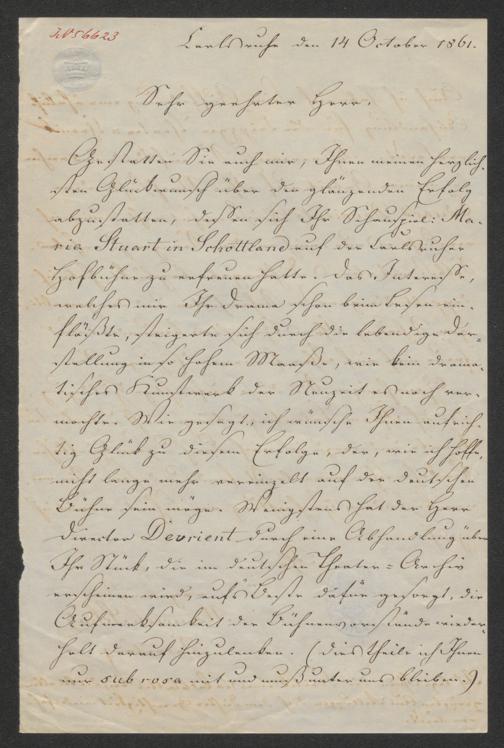 IN 56623
Carlsruhe den 14 October 1861.
Sehr geehrter Herr,
Gestatten Sie auch mir, Ihnen meinen herzlich-
sten Glückwunsch über den glänzenden Erfolg
abzustatten, dessen sich Ihr Schauspiel: Ma-
ria Stuart in Schottland auf der Carlsruher
Hofbühne zu erfreuen hatte. Das Interesse,
welches mir Ihr Drama schon beim Lesen ein-
flößte, steigerte sich durch die lebendige Dar-
stellung in so hohem Maaße, wie kein drama-
tisches Kunstwerk der Neuzeit es noch ver-
mochte. Wie gesagt, ich wünsche Ihnen aufrich-
tig Glück zu diesem Erfolge, der, wie ich hoffe,
nicht lange mehr vereinzelt auf der deutschen
Bühne sein möge. Wenigstens hat der Herr
Director Devrient durch eine Abhandlung über
Ihr Stück, die im deutschen Theater-Archiv
erscheinen wird, aufs Beste dafür gesorgt, die
Aufmerksamkeit der Bühnenvorstände wieder-
holt darauf hinzulenken. (Dies theile ich Ihnen
nur sub rosa mit und muß unter uns bleiben.)